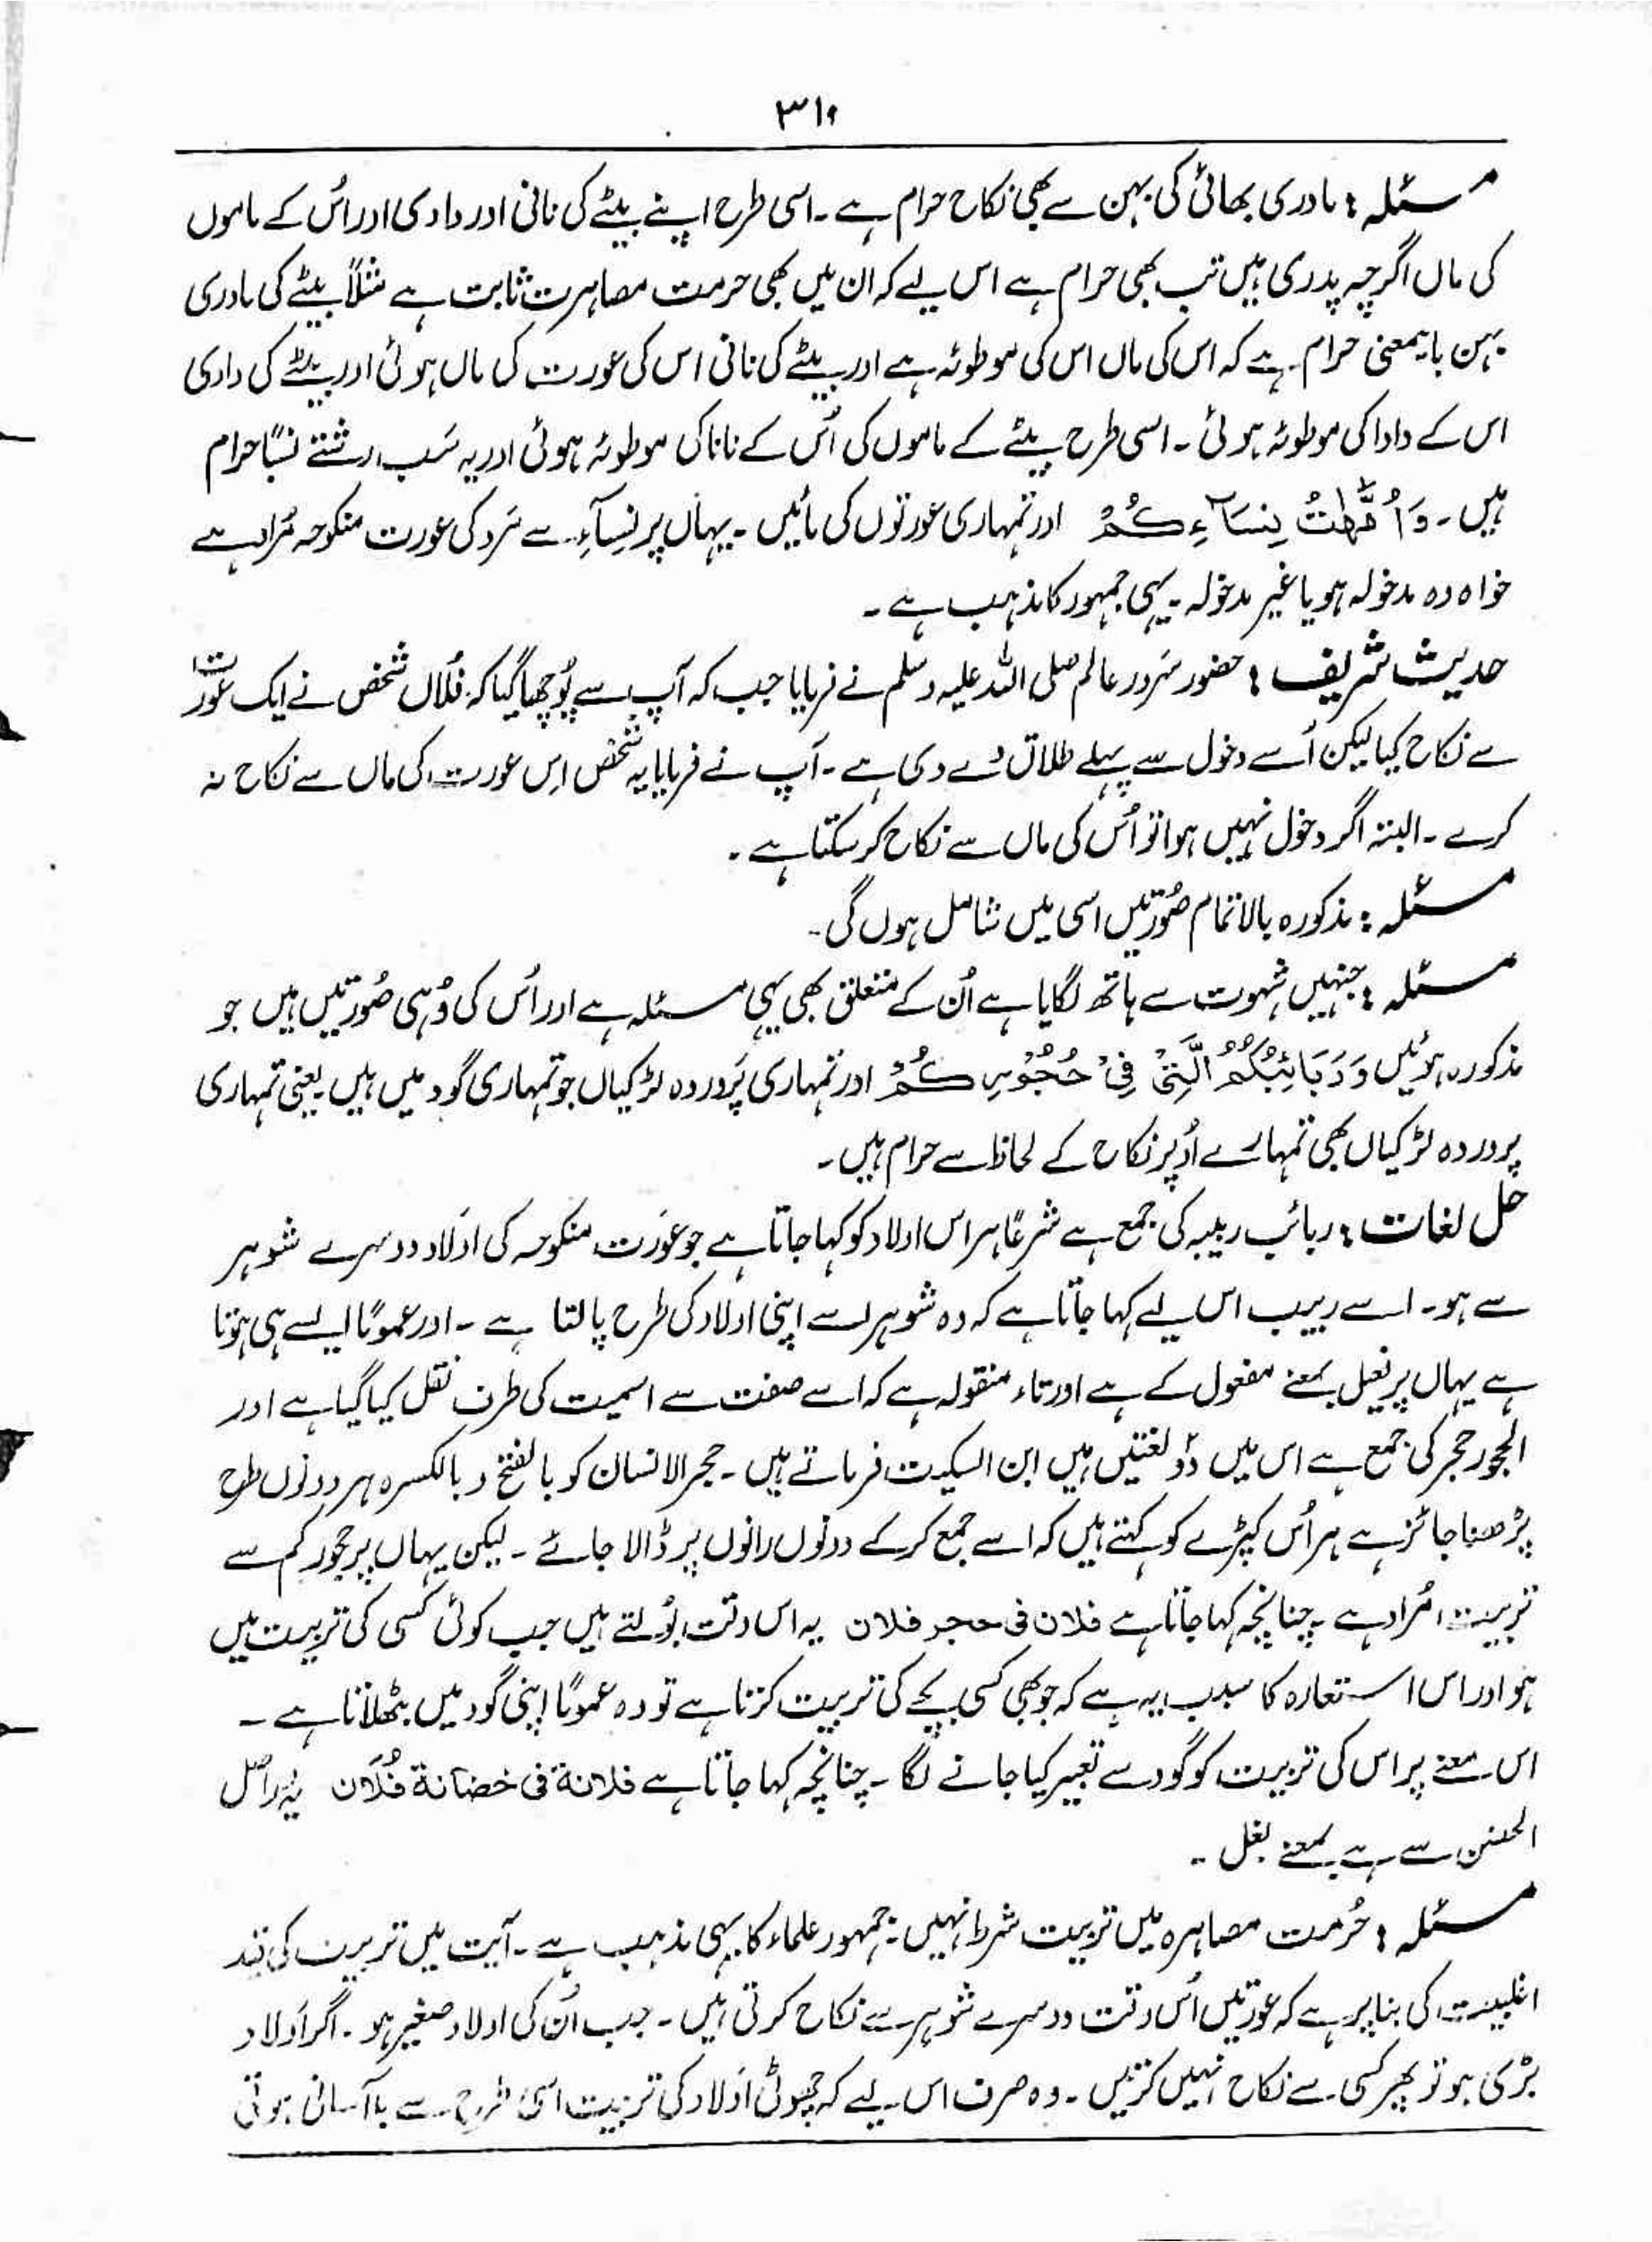 ۳۱۶
مسئلہ: مادری بھائی کی بہن سے بھی نکاح حرام ہے ۔ اسی طرح اپنے بیٹے کی نانی اور دادی اور اُس کے ماموں
کی ماں اگرچہ پدری ہیں تب بھی حرام ہے اس لیے کہ ان میں بھی حرمت مصاہرت ثابت ہے مثلاً بیٹے کی مادری
بہن بایمعنی حرام ہے کہ اس کی ماں اس کی موطوئہ ہے اور بیٹے کی نانی اس کی عورت کی ماں ہوئی اور بیٹے کی دادی
اس کے دادا کی موطوئہ ہوئی ۔ اسی طرح بیٹے کے ماموں کی اُس کے نانا کی موطوئہ ہوئی اور یہ سَب رشتے نسباً حرام
ہیں ۔ وَاُمَّهٰتُ نِسَآءِكُمْ اور تمہاری عورتوں کی مائیں ۔ یہاں پر نِسَآءِ سے مَرد کی عورت منکوحہ مُراد ہے
خواہ وہ مدخولہ ہو یا غیر مدخولہ ۔ یہی جمہور کا مذہب ہے ۔
حدیث شریف: حضور سَرورِ عالم صلی اللہ علیہ وسلم نے فرمایا جب کہ آپ سے پُوچھا گیا کہ فُلاں شخص نے ایک عورت
سے نکاح کیا لیکن اُسے دخول سے پہلے طلاق دے دی ہے ۔ آپ نے فرمایا یہ شخص اِس عورت کی ماں سے نکاح نہ
کرے ۔ البتہ اگر دخول نہیں ہوا تو اُس کی ماں سے نکاح کر سکتا ہے ۔
مسئلہ: مذکورہ بالا تمام صُورتیں اسی میں شامل ہوں گی ۔
مسئلہ: جنہیں شہوت سے ہاتھ لگایا ہے اُن کے متعلق بھی یہی مسئلہ ہے اور اُس کی وُہی صُورتیں ہیں جو
مذکورہ ہوئیں وَرَبَائِبُكُمُ الّٰتِیْ فِیْ حُجُوْرِكُمْ اور تمہاری پَروردہ لڑکیاں جو تمہاری گود میں ہیں یعنی تمہاری
پروردہ لڑکیاں بھی تمہارے اُوپر نکاح کے لحاظ سے حرام ہیں ۔
حل لغات: ربائب ربیبہ کی جمع ہے شرعًا ہر اس اولاد کو کہا جاتا ہے جو عَورَت منکوحہ کی اَولاد دوسرے شوہر
سے ہو ۔ اسے ربیب اس لیے کہا جاتا ہے کہ وہ شوہر اسے اپنی اولاد کی طرح پالتا ہے ۔ اور عمومًا ایسے ہی ہوتا
ہے یہاں پر فعیل بمعنے مفعول کے ہے اور تاء منقولہ ہے کہ اسے صفت سے اسمیت کی طرف نقل کیا گیا ہے اور
الحجور حجر کی جمع ہے اس میں دو لغتیں ہیں ابن السکیت فرماتے ہیں ۔ حجر الانسان کو بالفتح و بالکسرہ ہر دونوں طرح
پڑھنا جائز ہے ہر اُس کپڑے کو کہتے ہیں کہ اسے جمع کر کے دونوں رانوں پر ڈالا جائے ۔ لیکن یہاں پر حجور کم سے
تربیت مُراد ہے ۔ چنانچہ کہا جاتا ہے فلان فی حجر فلان یہ اس وقت بولتے ہیں جب کوئی کسی کی تربیت میں
ہو اور اس استعارہ کا سبب یہ ہے کہ جو بھی کسی بچے کی تربیت کرتا ہے تو وہ عمومًا اپنی گود میں بٹھلاتا ہے ۔
اس معنے پر اس کی تربیت کو گود سے تعبیر کیا جانے لگا ۔ چنانچہ کہا جاتا ہے فلانة فی خضانة فُلَان یہ دراصل
الحضن سے ہے بمعنے بغل ۔
مسئلہ: حُرمت مصاہرہ میں تربیت شرط نہیں ۔ جمہور علماء کا یہی مذہب ہے ۔ آیت میں تربیت کی قید
اغلبیت کی بنا پر ہے کہ عورتیں اُس وقت دوسرے شوہر سے نکاح کرتی ہیں ۔ جب اُن کی اولاد صغیر ہو ۔ اگر اَولاد
بڑی ہو تو پھر کسی سے نکاح نہیں کرتیں ۔ وہ صرف اس لیے کہ چھوٹی اَولاد کی تربیت اسی طرح سے باآسانی ہوتی